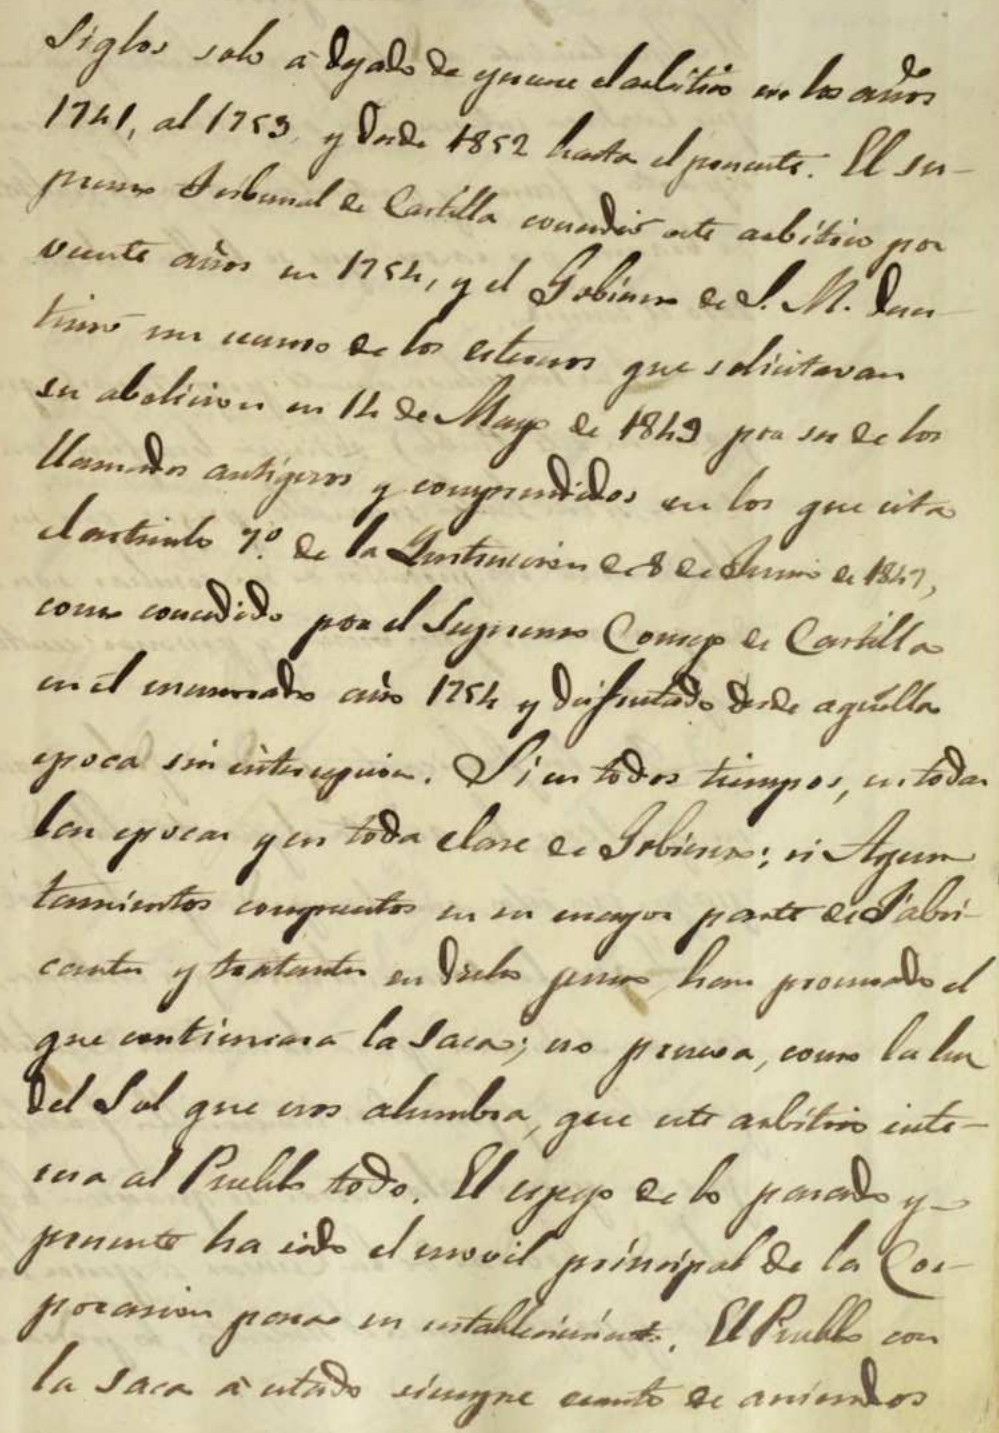 Siglos solo a dejado de ejercerse el arbitrio en los años
1741, al 1753, y desde 1852 hasta el presente. El Su-
premo Tribunal de Castilla concedió este arbitrio por
veinte años en 1754, y el Gobierno de S. M. deses-
timó un recurso de los estremos que solicitavan
su abolicion en 14 de Mayo de 1849 por ser de los
llamados antiguos y comprendidos en los que cita
el articulo 7º. de la Instruccion de 8 de Junio de 1847,
como concedido por el Supremo Consejo de Castilla
en el enunciado año 1754 y disfrutado desde aquélla
epoca sin interrupcion. Si en todos tiempos, en todas
las epocas y en toda clase de Gobierno; si Ayun
tamientos compuestos en su mayor parte de Fabri-
cantes y tratantes en dicho genero, han procurado el
que continuara la Saca; no prueva, como la luz
del Sol que nos alumbra, que este arbitrio inte-
resa al Pueblo todo. El espejo de lo pasado y
presente ha sido el movil principal de la Cor-
poracion para su establecimiento. El Pueblo con
la Saca a estado siempre esento de